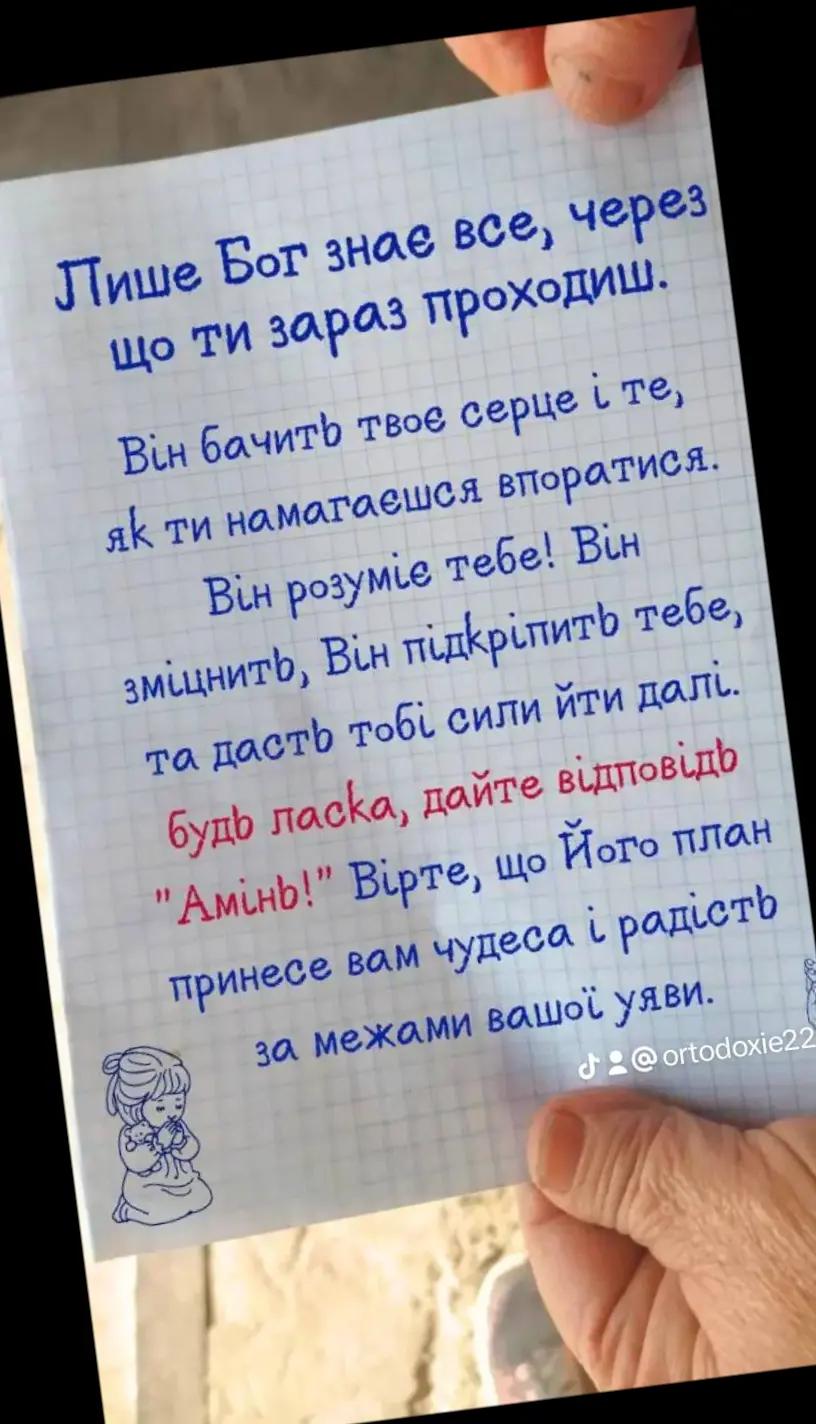 Лише Бог знає все, через
що ти зараз проходиш.
Він бачить твоє серце і те,
як ти намагаєшся впоратися.
Він розуміє тебе! Він
зміцнить, Він підкріпить тебе,
та дасть тобі сили йти далі.
будь ласка, дайте відповідь
"Амінь!" Вірте, що Його план
принесе вам чудеса і радість
за межами вашої уяви.
@ortodoxie22